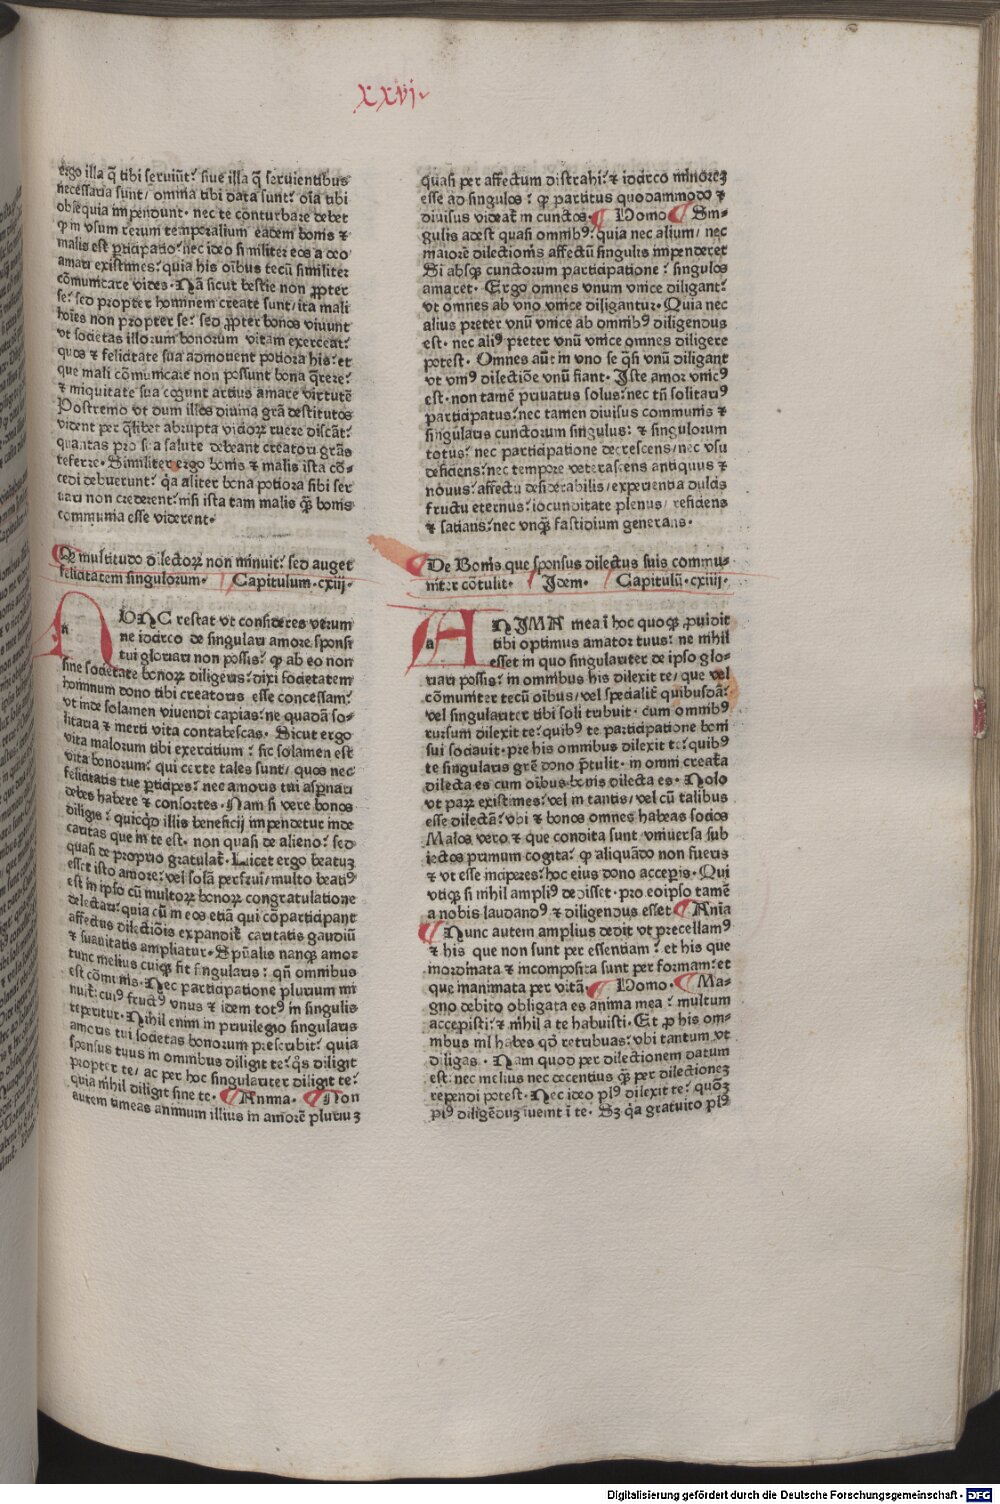 xxvi
ergo illa q̄ tibi serviūt: siue illa q̄ seruientibus
necessaria sunt/ omnia tibi data sunt: oīa tibi
obsequia impendunt. nec te conturbare debet
ꝙ in vsum rerum temporalium eadem bonis ⁊
malis est pticipatio: nec ideo similiter eos a deo
amari existimes: quia his oībus tecū similiter
cōmunicare vides. Nā sicut bestie non ꝓpter
se: sed propter hominem create sunt/ ita mali
hoīes non propter se: sed ꝓpter bonos viuunt
vt societas illorum bonorum vitam exerceat:
quos ⁊ felicitate sua admouent potiora his: et
que mali cōmunicare non possunt bona q̄rere:
⁊ iniquitate sua cogunt artius amare virtutē
Postremo vt dum illos diuina grā destitutos
vident per q̄libet abrupta viciorꝝ ruere discāt:
quantas pro sua salute debeant creatori grās
referre. Similiter ergo bonis ⁊ malis ista cō-
cedi debuerunt: q̄a aliter bona potiora sibi ser
uari non crederent: nisi ista tam malis q̄ꝫ bonis
communia esse viderent.
Qꝫ multitudo dilectorꝝ non minuit: sed auget
felicitatem singulorum. Capitulum. cxiij.
n
VNC restat vt consideres verum
ne idcirco de singulari amore sponsi
tui gloriari non possis: ꝙ ab eo non
sine societate bonorꝝ diligeris: dixi societatem
hominum dono tibi creatoris esse concessam:
vt inde solamen viuendi capias: ne quadā so-
litaria ⁊ inerti vita contabescas. Sicut ergo
vita malorum tibi exercitium: sic solamen est
vita bonorum: qui certe tales sunt/ quos nec
felicitatis tue pticipes: nec amoris tui aspnari
debes habere ⁊ consortes. Nam si vere bonos
diligis: quicqd illis beneficij impendetur inde
caritas que in te est. non quasi de alieno: sed
quasi de proprio gratulat. Licet ergo beatuꝫ
esset isto amore: vel solā perfrui/ multo beati⁹
est in ipso cū multorꝝ bonorꝝ congratulatione
delectari: quia cū in eos etiā qui cōparticipant
affectus dilectiōis expandit caritatis gaudiū
⁊ suauitatis ampliatur. Spūalis nanqꝫ amor
tunc melius cuiqꝫ fit singularis: qn̄ omnibus
est cōmūis. Nec participatione plurium mi
nuit: cui⁹ fruct⁹ vnus ⁊ idem tot⁹ in singulis
reperitur. Nihil enim in priuilegio singularis
amoris tui societas bonorum prescribit: quia
sponsus tuus in omnibus diligit te: q̄s diligit
propter te/ ac per hoc singulariter diligit te:
quia nihil diligit sine te. Anima. Non
autem timeas animum illius in amorē pluriuꝫ
quasi per affectum distrahi: ⁊ idcirco minoreꝫ
esse ad singulos: ꝙ partitus quodammodo ⁊
diuisus videat in cunctos. Homo Sin-
gulis adest quasi omnib⁹: quia nec alium/ nec
maiorē dilectionis affectū singulis impenderet
Si absqꝫ cunctorum participatione: singulos
amaret. Ergo omnes vnum vnice diligant:
vt omnes ab vno vnice diligantur. Quia nec
alius preter vnū vnice ab omnib⁹ diligendus
est. nec ali⁹ preter vnū vnice omnes diligere
potest. Omnes aūt in vno se q̄si vnū diligant
vt vni⁹ dilectiōe vnū fiant. Iste amor vnic⁹
est. non tamē priuatus solus: nec tn̄ solitari⁹
participatus: nec tamen diuisus communis ⁊
singularis cunctorum singulus: ⁊ singulorum
totus: nec participatione decrescens/ nec vsu
deficiens: nec tempore veterascens antiquus ⁊
nouus: affectu desiderabilis/ experientia dulcis
fructu eternus: iocunditate plenus/ reficiens
⁊ satians: nec vnqꝫ fastidium generans.
De Bonis que sponsus dilectus suis commu-
niter cōtulit. Idem. Capitulū. cxiiij.
a
NIMA mea ī hoc quoqꝫ ꝓuidit
tibi optimus amator tuus: ne nihil
esset in quo singulariter de ipso glo-
riari possis: in omnibus his dilexit te/ que vel
cōmuniter tecū oībus/ vel specialit quibusdā:
vel singulariter tibi soli tribuit. cum omnib⁹
rursum dilexit te: quib⁹ te participatione boni
sui sociauit. pre his omnibus dilexit te: quib⁹
te singularis grē dono ptulit. in omni creata
dilecta es cum oībus bonis dilecta es. Nolo
vt parꝝ existimes: vel in tantis/ vel cū talibus
esse dilectā: vbi ⁊ bonos omnes habeas socios
Malos vero ⁊ que condita sunt vniuersa sub
iectos primum cogita: ꝙ aliquādo non fueris
⁊ vt esse inciperes: hoc eius dono acceperis. Qui
vtiqꝫ si nihil ampli⁹ dedisset. pro eoipso tamē
a nobis laudand⁹ ⁊ diligendus esset Aīnia
Nunc autem amplius dedit vt precellam⁹
⁊ his que non sunt per essentiam: et his que
inordinata ⁊ incomposita sunt per formam: et
que inanimata per vitā. Homo. Ma-
gno debito obligata es anima mea: multum
accepisti: ⁊ nihil a te habuisti. Et ꝓ his om-
nibus nil habes qd retribuas: vbi tantum vt
diligas. Nam quod per dilectionem datum
est: nec melius nec decentius q̄ꝫ per dilectioneꝫ
rependi potest. Nec ideo pl⁹ dilexit te: quoꝫ
pl⁹ diligēduꝫ inueint ī te. Sꝫ q̄a gratuito pl⁹
Digitalisierung gefördert durch die Deutsche Forschungsgemeinschaft - DFG